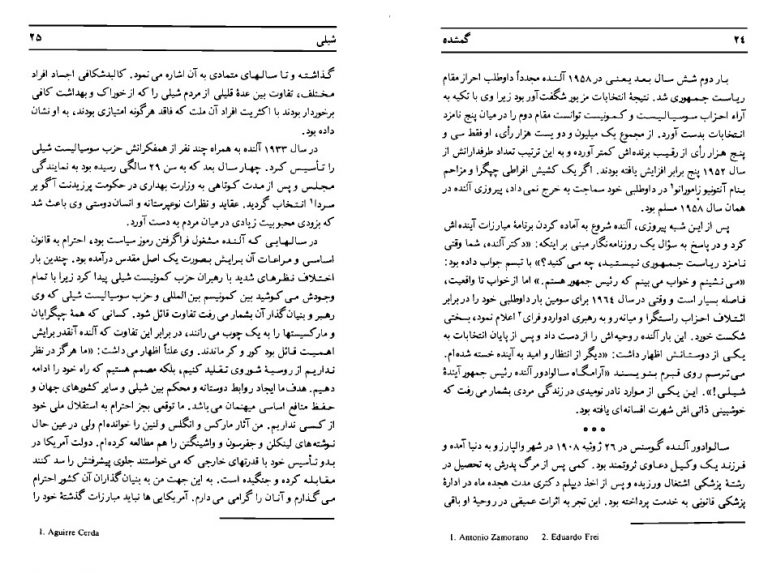 ۲٤ گمشده
بار دوم شش سال بعد یعنی در ۱۹۵۸ آلنده مجدداً داوطلب احراز مقام
ریاست جمهوری شد. نتیجهٔ انتخابات مزبور شگفت‌آور بود زیرا وی با تکیه به
آراء احزاب سوسیالیست و کمونیست توانست مقام دوم را در میان پنج نامزد
انتخابات بدست آورد. از مجموع یک میلیون و دویست هزار رأی، او فقط سی و
پنج هزار رأی از رقیب برنده‌اش کمتر آورده و به این ترتیب تعداد طرفدارانش از
سال ۱۹۵۲ پنج برابر افزایش یافته بودند. اگر یک کشیش افراطی چپگرا و مزاحم
بنام آنتونیو زامورانو۱ در داوطلبی خود سماجت به خرج نمی‌داد، پیروزی آلنده در
همان سال ۱۹۵۸ مسلم بود.
پس از این شبه پیروزی، آلنده شروع به آماده کردن برنامهٔ مبارزات آینده‌اش
کرد و در پاسخ به سؤال یک روزنامه‌نگار مبنی بر اینکه: «دکتر آلنده، شما وقتی
نامزد ریاست جمهوری نیستید، چه می‌کنید؟» با تبسم جواب داده بود:
«می‌نشینم و خواب می‌بینم که رئیس جمهور هستم.» اما از خواب تا واقعیت،
فاصله بسیار است و وقتی در سال ۱۹٦٤ برای سومین بار داوطلبی خود را در برابر
ائتلاف احزاب راستگرا و میانه‌رو به رهبری ادواردو فرای۲ اعلام نمود، بسختی
شکست خورد. این بار آلنده روحیه‌اش را از دست داد و پس از پایان انتخابات به
یکی از دوستانش اظهار داشت: «دیگر از انتظار و امید به آینده خسته شده‌ام.
می‌ترسم روی قبرم بنویسند «آرامگاه سالوادور آلنده رئیس جمهور آیندهٔ
شیلی!». این یکی از موارد نادر نومیدی در زندگی مردی بشمار می‌رفت که
خوشبینی ذاتی‌اش شهرت افسانه‌ای یافته بود.
● ● ●
سالوادور آلنده گوسنس در ۲٦ ژوئیه ۱۹۰۸ در شهر والپارزو به دنیا آمده و
فرزند یک وکیل دعاوی ثروتمند بود. کمی پس از مرگ پدرش به تحصیل در
رشتهٔ پزشکی اشتغال ورزیده و پس از اخذ دیپلم دکتری مدت هجده ماه در ادارهٔ
پزشکی قانونی به خدمت پرداخته بود. این تجربه اثرات عمیقی در روحیهٔ او باقی
1. Antonio Zamorano 2. Eduardo Frei
شیلی ۲۵
گذاشته و تا سالهای متمادی به آن اشاره می نمود. کالبدشکافی اجساد افراد
مختلف، تفاوت بین عدهٔ قلیلی از مردم شیلی را که از خوراک و بهداشت کافی
برخوردار بودند با اکثریت افراد آن ملت که فاقد هرگونه امتیازی بودند، به او نشان
داده بود.
در سال ۱۹۳۳ آلنده به همراه چند نفر از همفکرانش حزب سوسیالیست شیلی
را تأسیس کرد. چهار سال بعد که به سن ۲۹ سالگی رسیده بود به نمایندگی
مجلس و پس از مدت کوتاهی به وزارت بهداری در حکومت پرزیدنت آگویر
سردا۱ انتخاب گردید. عقاید و نظرات نوع‌پرستانه و انسان‌دوستی وی باعث شد
که بزودی محبوبیت زیادی در میان مردم به دست آورد.
در سالهایی که آلنده مشغول فراگرفتن رموز سیاست بود، احترام به قانون
اساسی و مراعات آن برایش بصورت یک اصل مقدس درآمده بود. چندین بار
اختلاف نظرهای شدید با رهبران حزب کمونیست شیلی پیدا کرد زیرا با تمام
وجودش می کوشید بین کمونیسم بین‌المللی و حزب سوسیالیست شیلی که وی
رهبر و بنیان‌گذار آن بشمار می‌رفت تفاوت قائل شود. کسانی که همهٔ چپگرایان
و مارکسیستها را به یک چوب می‌رانند، در برابر این تفاوت که آلنده آنقدر برایش
اهمیت قائل بود کور و کر ماندند. وی علناً اظهار می‌داشت: «ما هرگز در نظر
نداریم از روسیهٔ شوروی تقلید کنیم، بلکه مصمم هستیم که راه خود را ادامه
دهیم. هدف ما ایجاد روابط دوستانه و محکم بین شیلی و سایر کشورهای جهان و
حفظ منافع اساسی میهنمان می‌باشد. ما توقعی بجز احترام به استقلال ملی خود
از کسی نداریم. من آثار مارکس و انگلس و لنین را خوانده‌ام ولی در عین حال
نوشته‌های لینکلن و جفرسون و واشینگتن را هم مطالعه کرده‌ام. دولت آمریکا در
بدو تأسیس خود با قدرتهای خارجی که می‌خواستند جلوی پیشرفتش را سد کنند
مقابله کرده و جنگیده است. به این جهت من به بنیان‌گذاران آن کشور احترام
می‌گذارم و آنان را گرامی می دارم. آمریکایی ها نباید مبارزات گذشتهٔ خود را
1. Aguirre Cerda